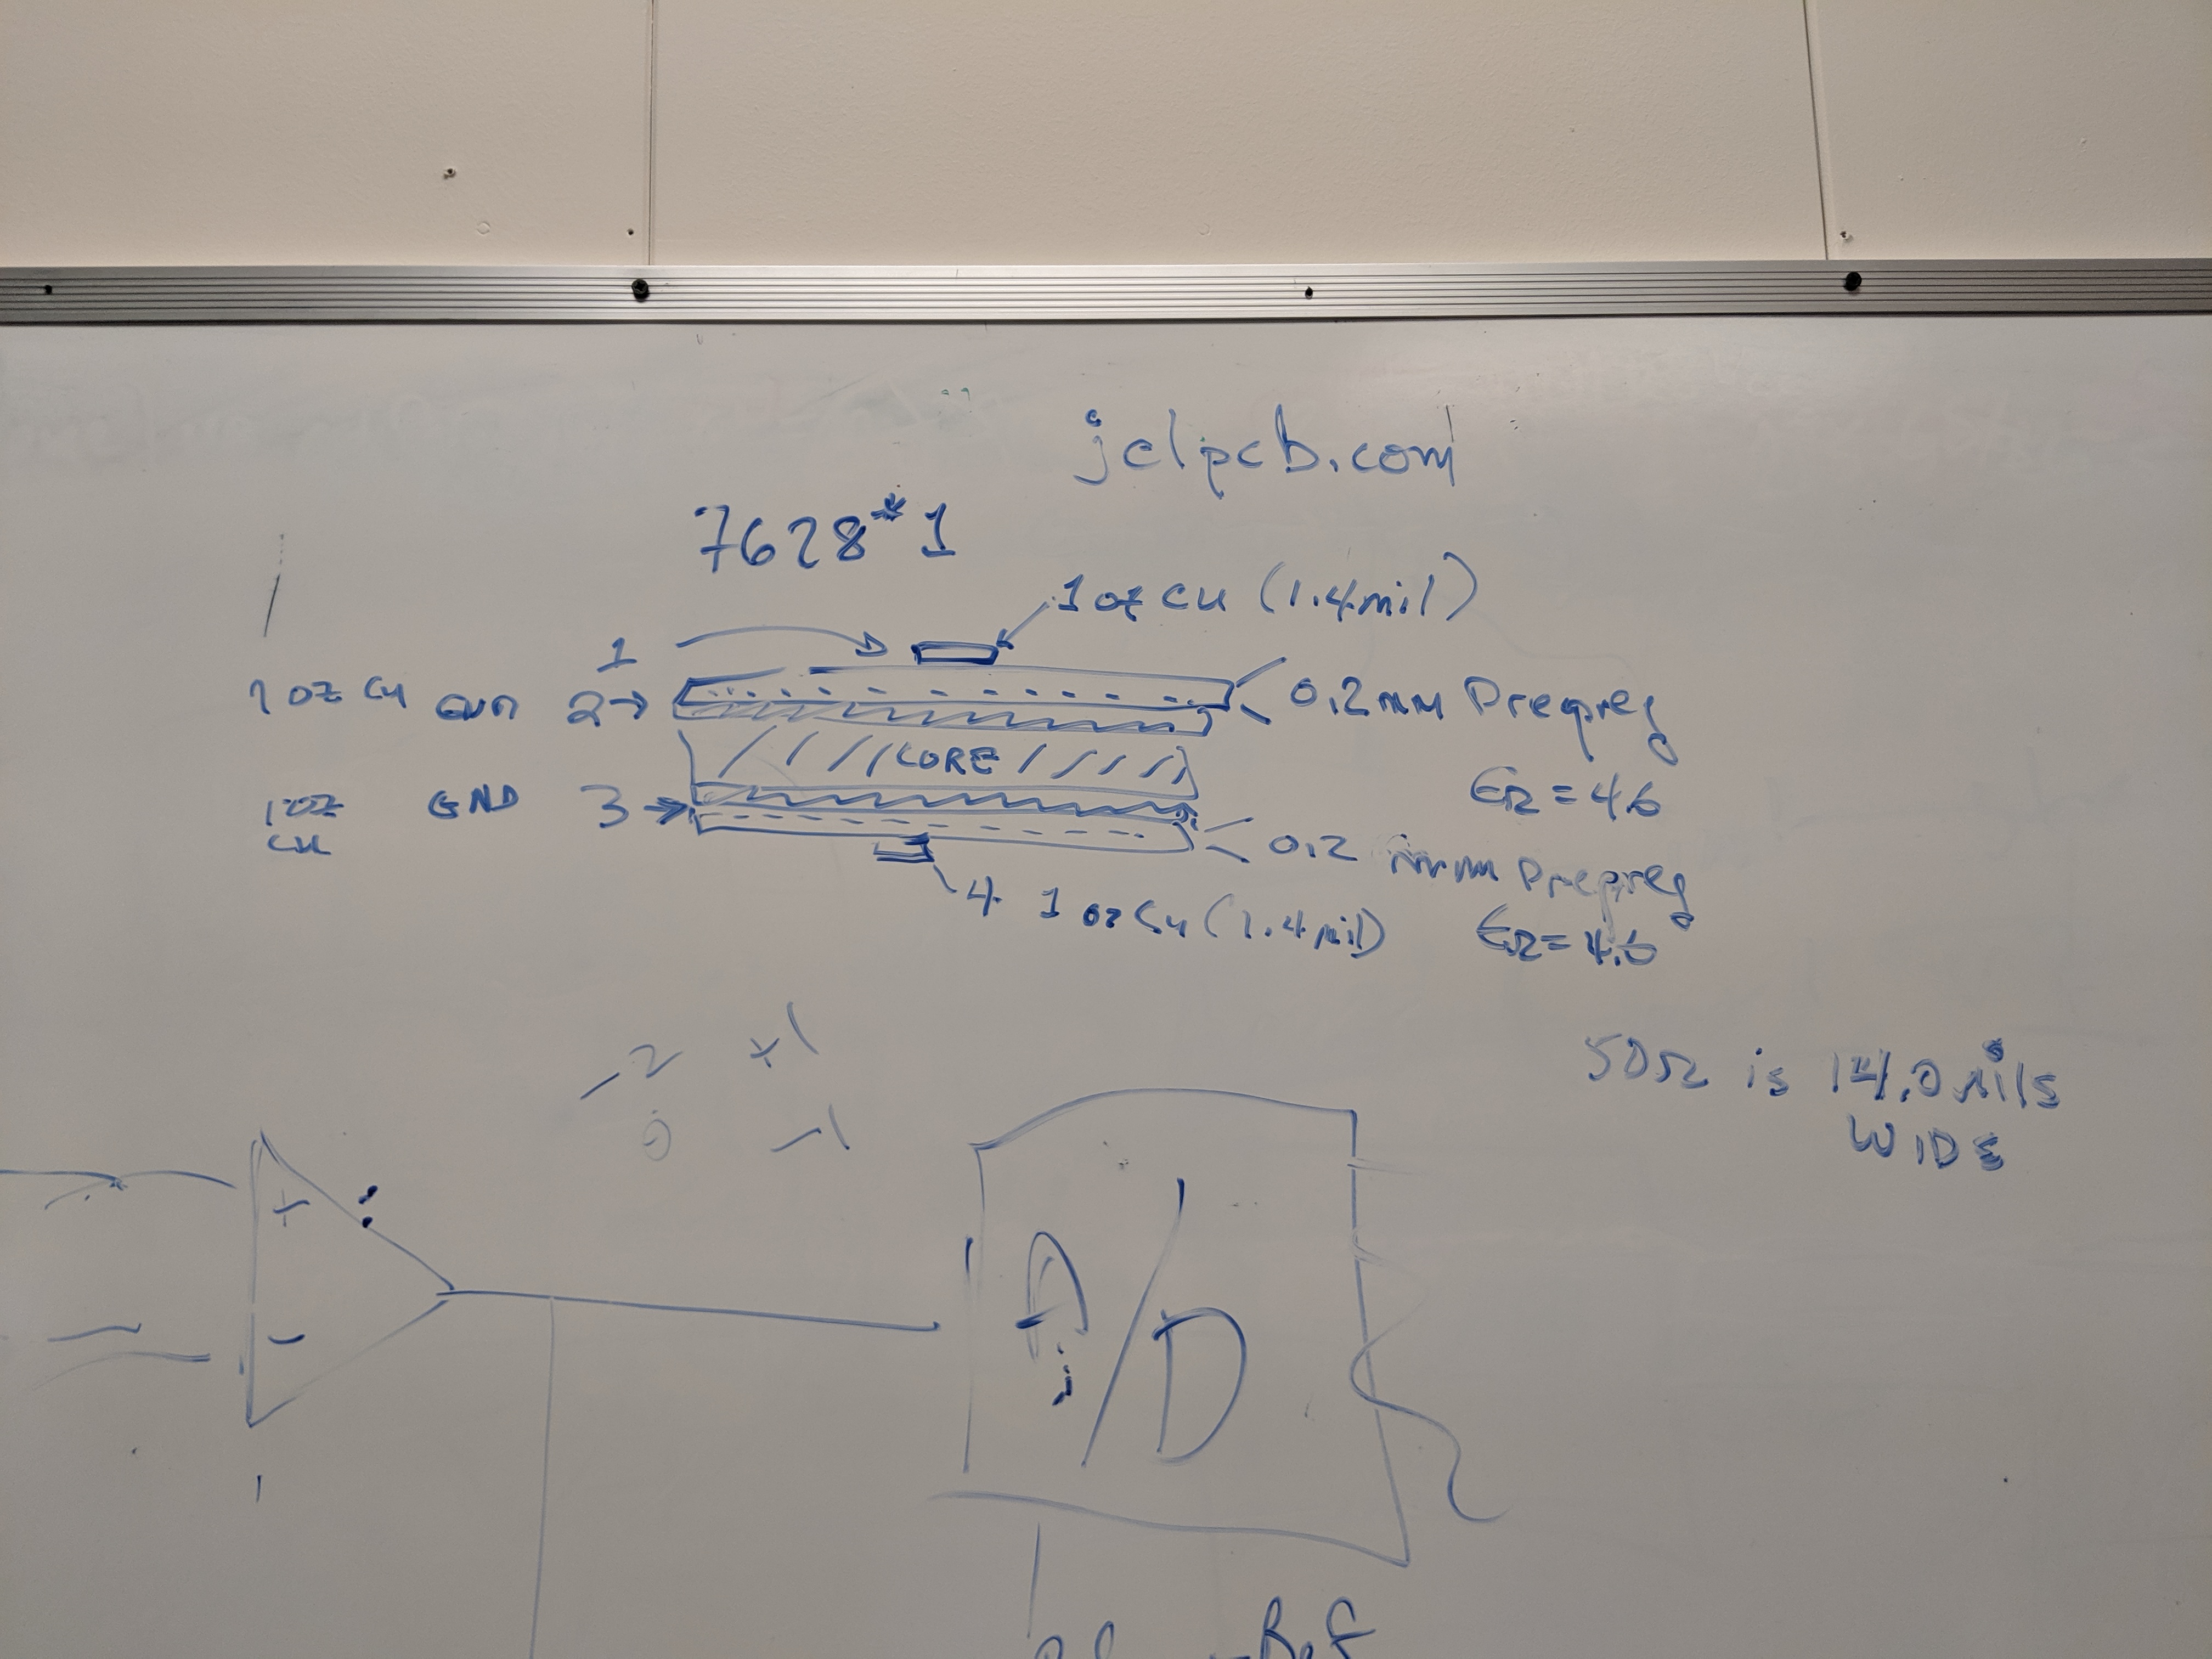 jclpcb.com
7628*1
1 oz Cu (1.4mil)
1
1 oz Cu GND 2→
0.2mm Prepreg
CORE
ER=4.6
1 oz GND 3→
Cu
0.2 mm Prepreg
4 1 oz Cu (1.4mil)
ER=4.6
-2 +1
0 -1
50Ω is 14.0 mils
WIDE
+
-
A/D
Ref